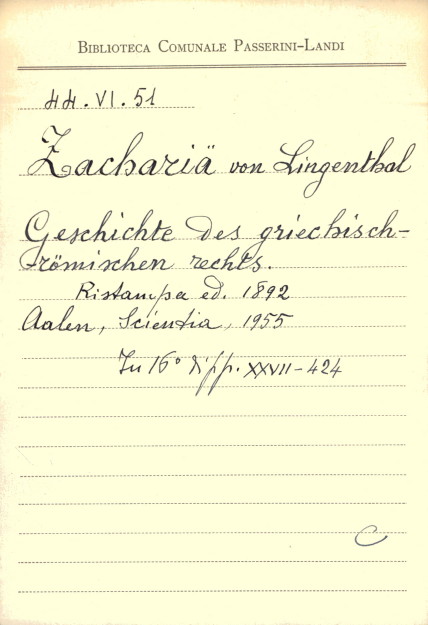 BIBLIOTECA COMUNALE PASSERINI-LANDI
44.VI.51
Zachariä von Lingenthal
Geschichte des griechisch-
römischen rechts.
Ristampa ed. 1892
Aalen, Scientia, 1955
In 16° di pp. XXVII-424
C